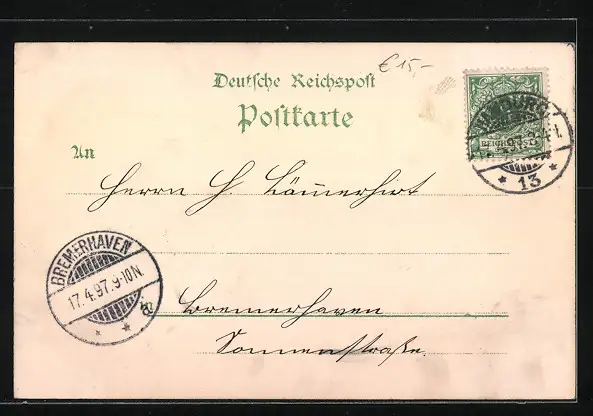 € 15,-
Deutsche Reichspost
Postkarte
An
Herrn H. Lämmerhirt
Bremerhaven
Sonnenstraße.
HAMBURG
* 13 *
REICHSPOST
BREMERHAVEN
17.4.97.9-10N.
* *